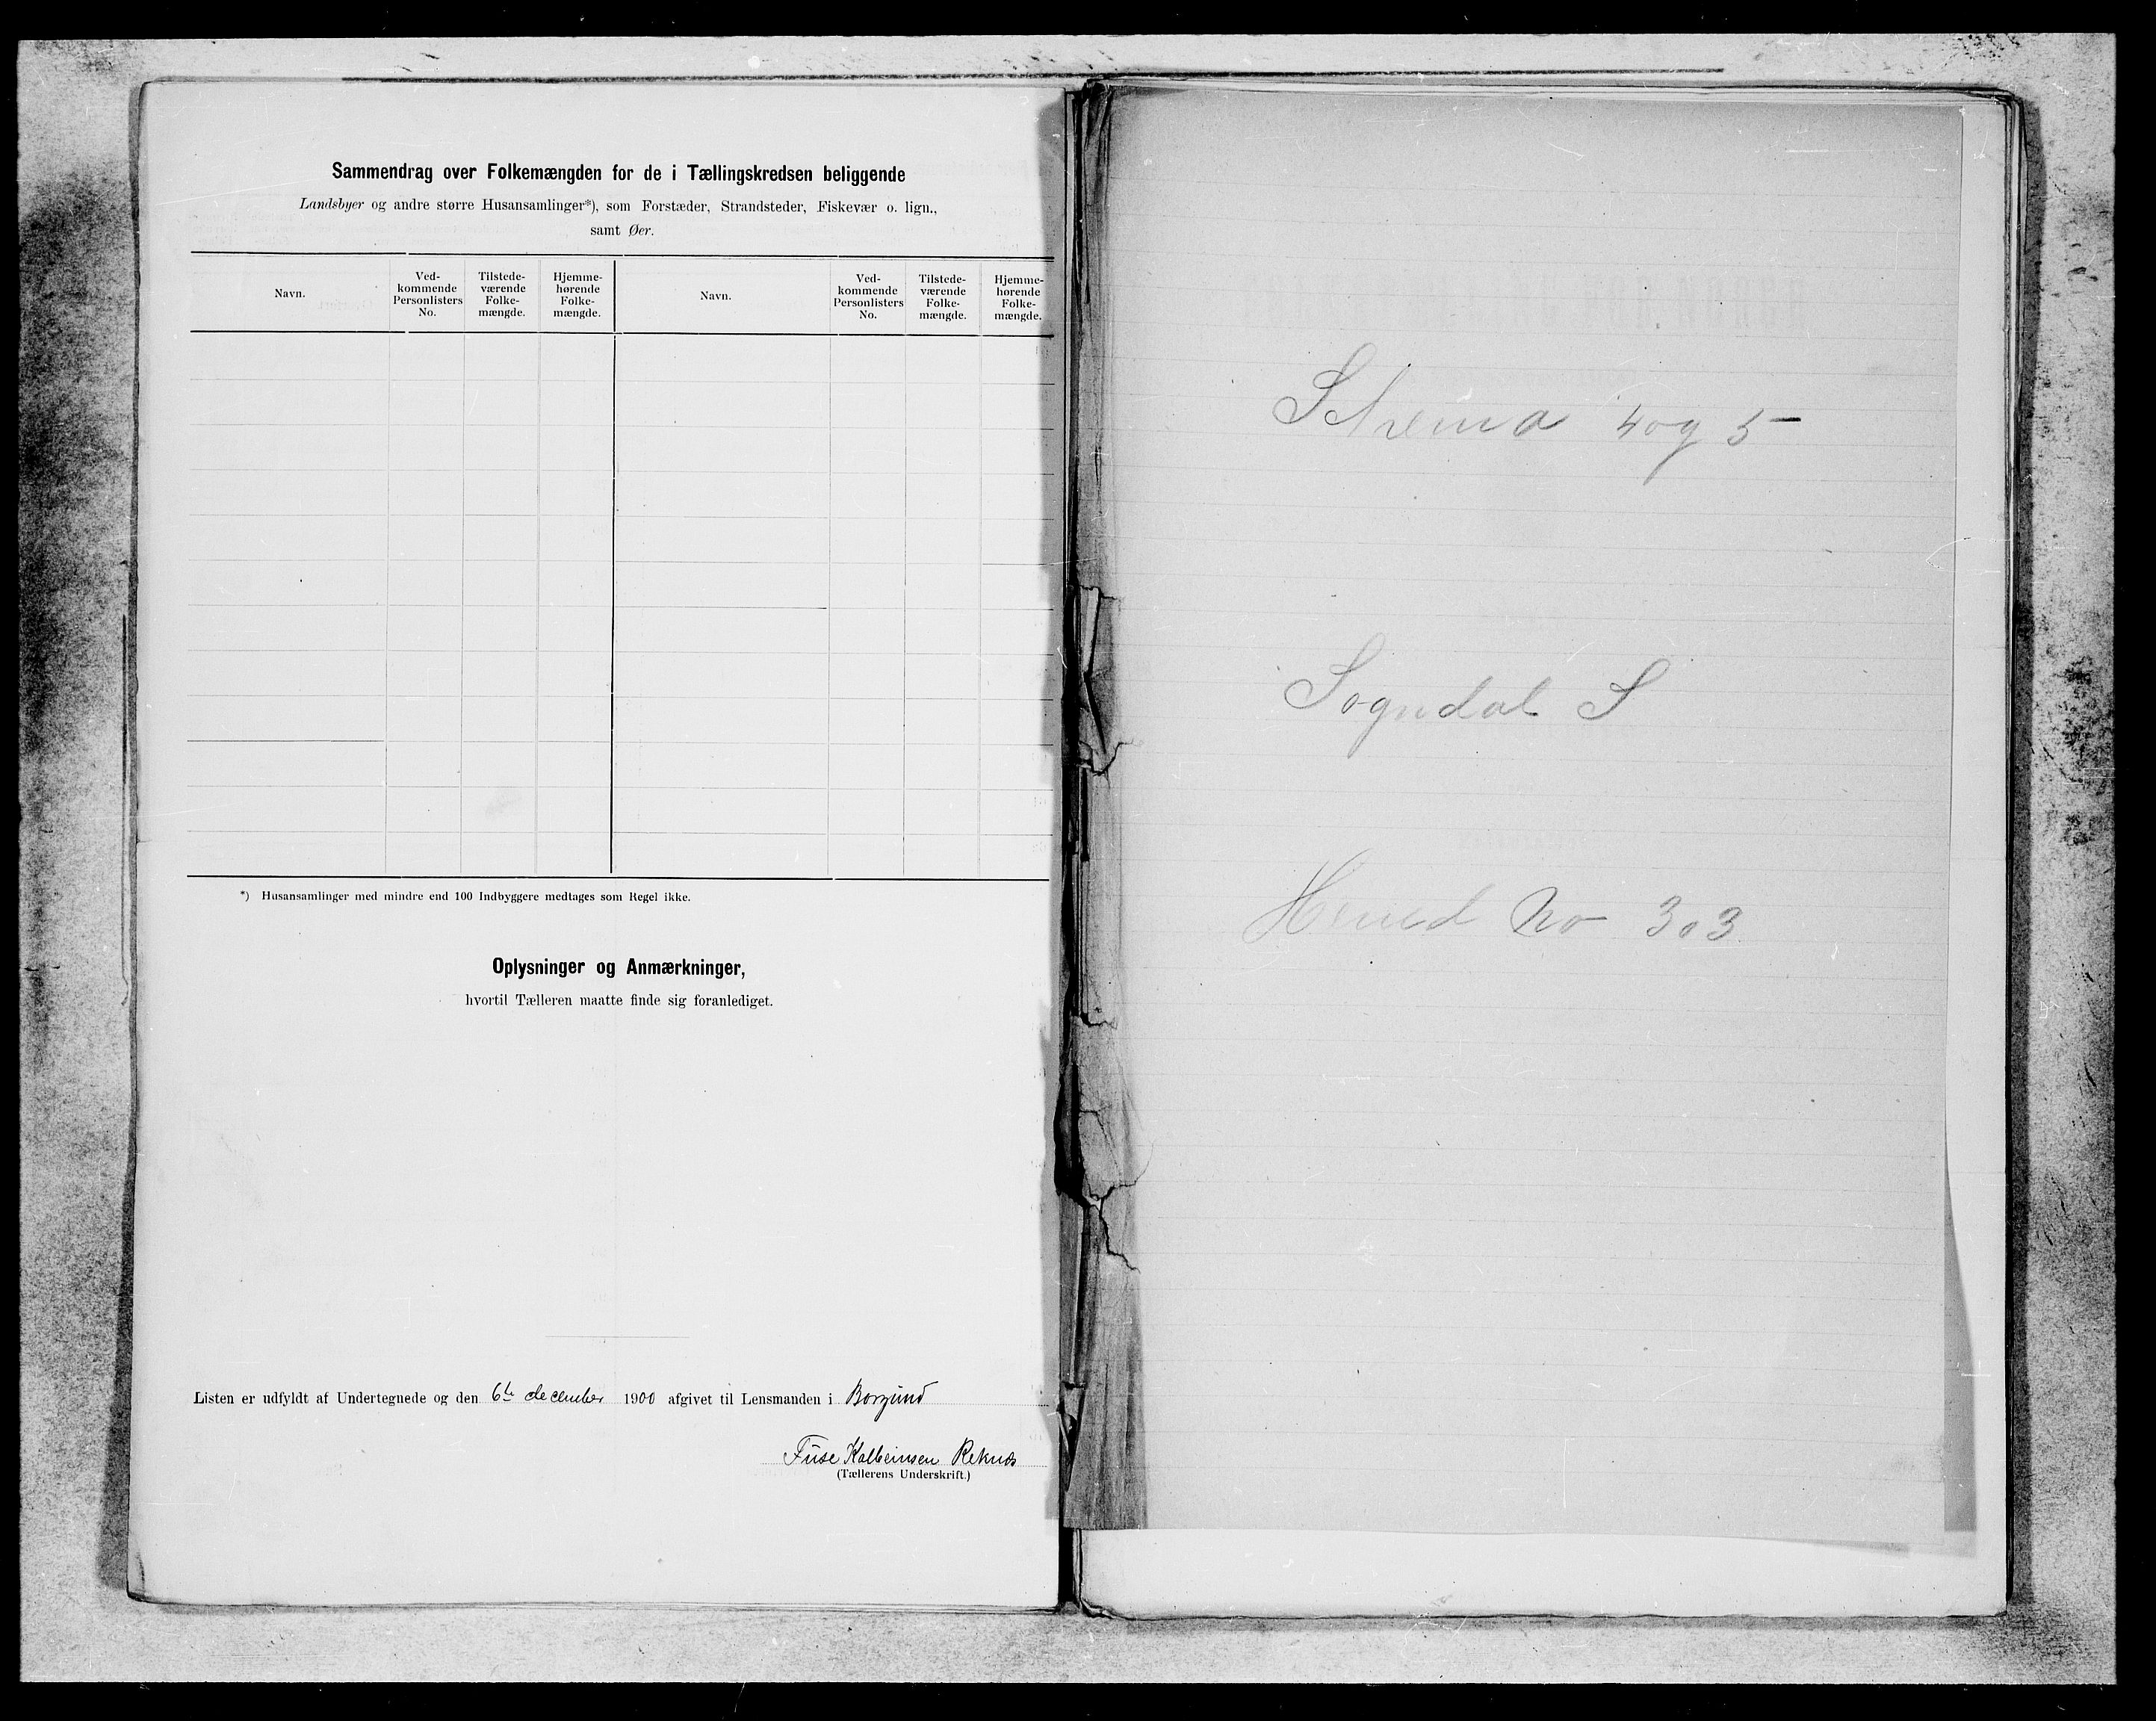 Sammendrag over Folkemængden for de i Tællingskredsen beliggende
Landsbyer og andre større Husansamlinger*), som Forstæder, Strandsteder, Fiskevær o. lign.,
samt Øer.
Navn.
Ved-
kommende
Personlisters
No.
Tilstede-
værende
Folke-
mængde.
Hjemme-
hørende
Folke-
mængde.
Navn.
Ved-
kommende
Personlisters
No.
Tilstede-
værende
Folke-
mængde.
Hjemme-
hørende
Folke-
mængde.
*) Husansamlinger med mindre end 100 Indbyggere medtages som Regel ikke.
Oplysninger og Anmærkninger,
hvortil Tælleren maatte finde sig foranlediget.
Listen er udfyldt af Undertegnede og den 6te december 1900 afgivet til Lensmanden i Borgund
Kolbeinsen Reknes
(Tællerens Underskrift.)
Skema 4 og 5
Sogndal S
Herred No 303